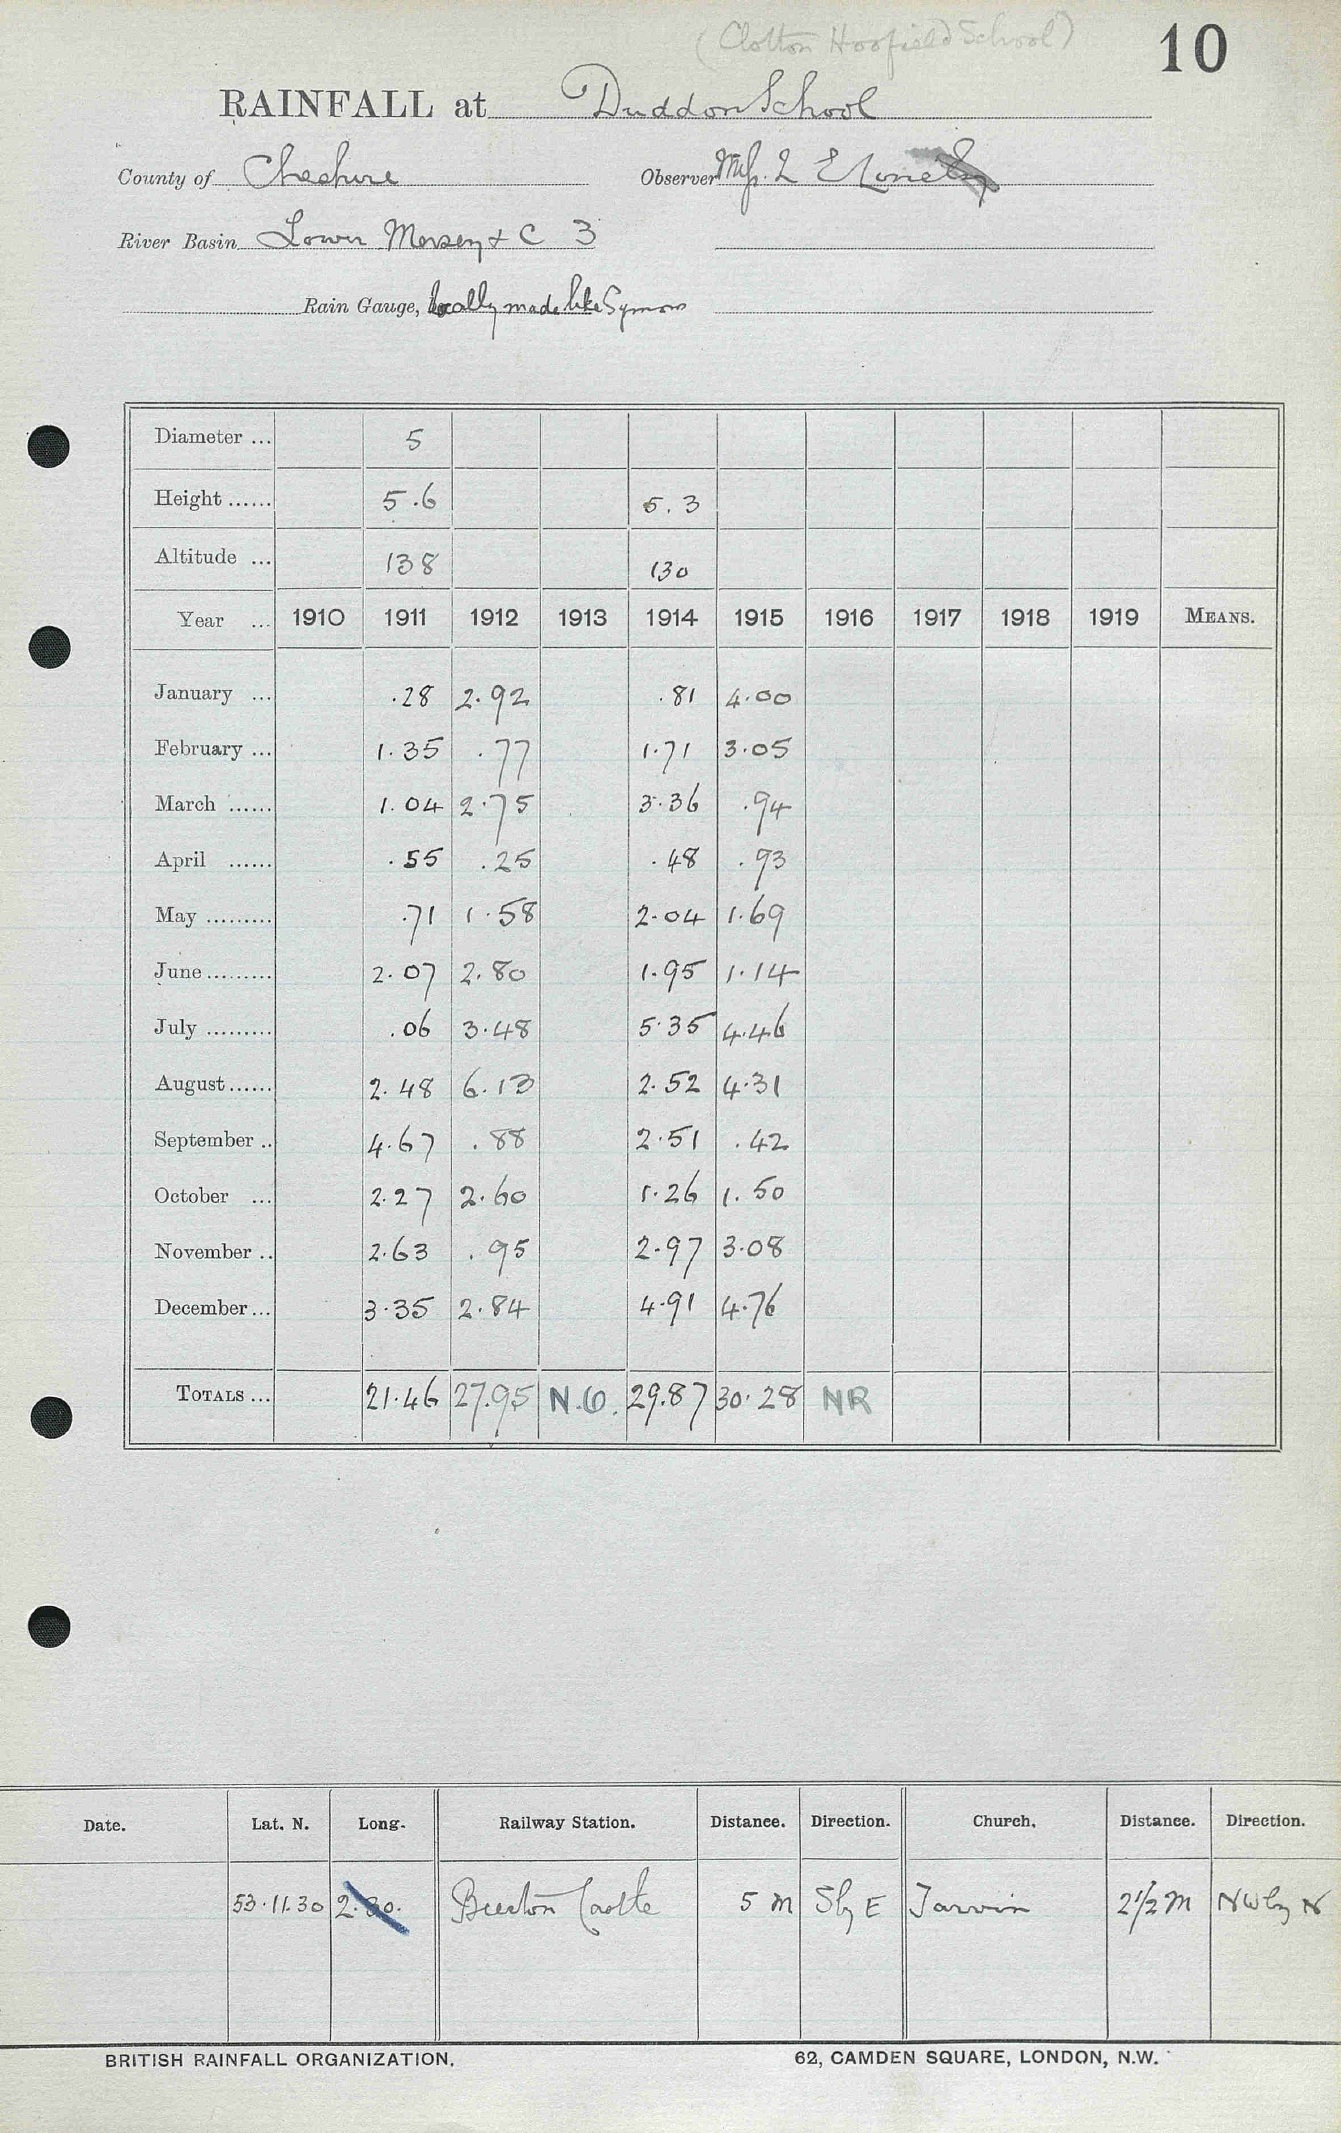 (Clotton Hoofield School)
10
RAINFALL at Duddon School
County of Cheshire Observer Miss. L E
River Basin Lower Mersey & C 3
Rain Gauge, locally made like Symons
Diameter ... 5
Height ...... 5.6 5.3
Altitude ... 138 130
Year ... 1910 1911 1912 1913 1914 1915 1916 1917 1918 1919 MEANS.
January ... .28 2.92 .81 4.00
February ... 1.35 .77 1.71 3.05
March ...... 1.04 2.75 3.36 .94
April ...... .55 .25 .48 .93
May ......... .71 1.58 2.04 1.69
June ......... 2.07 2.80 1.95 1.14
July ......... .06 3.48 5.35 4.46
August ...... 2.48 6.13 2.52 4.31
September .. 4.67 .88 2.51 .42
October ... 2.27 2.60 1.26 1.50
November .. 2.63 .95 2.97 3.08
December ... 3.35 2.84 4.91 4.76
TOTALS ... 21.46 27.95 N.O. 29.87 30.28 NR
Date. Lat. N. Long. Railway Station. Distance. Direction. Church. Distance. Direction.
53.11.30 Beeston Castle 5 M S by E Tarvin 2 1/2 M NW by N
BRITISH RAINFALL ORGANIZATION. 62, CAMDEN SQUARE, LONDON, N.W.